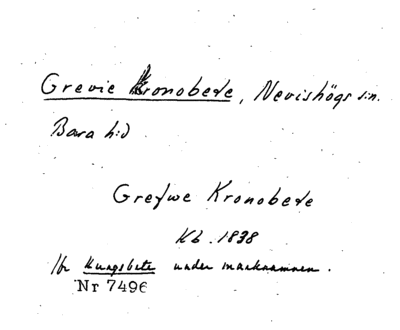 Grevie Kronobete, Nevishögs sn.
Bara hd
Grefwe Kronobete
Kb. 1838
Kungsbete under marknamnen.
Nr 7496